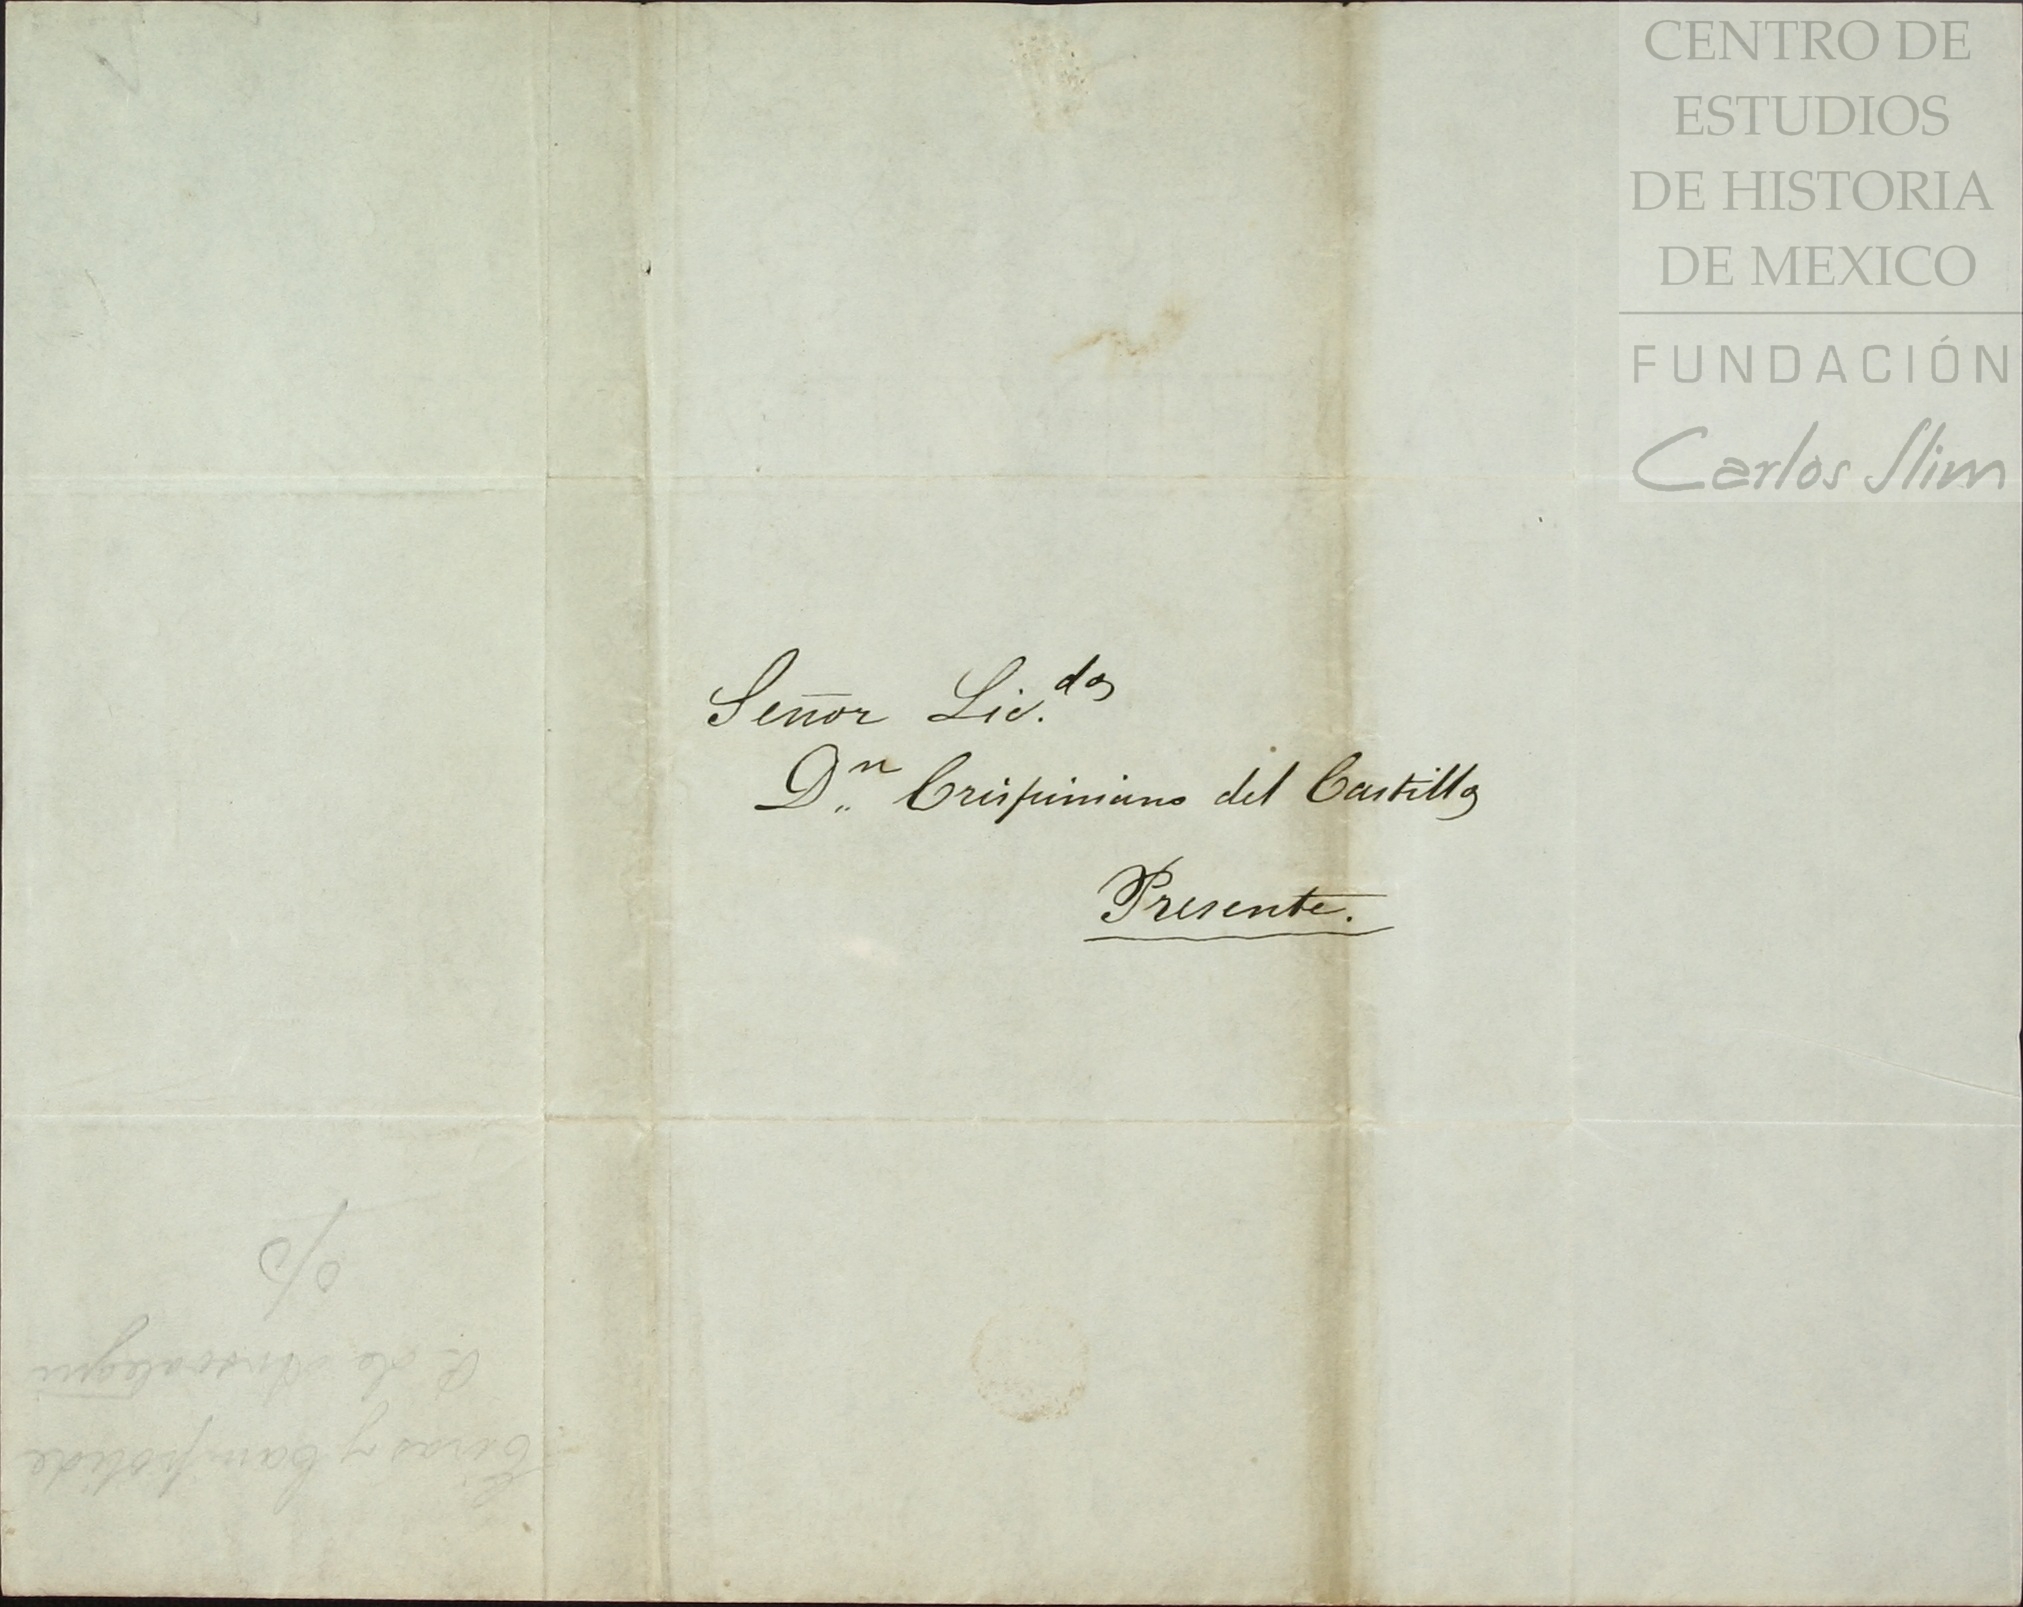 CENTRO DE
ESTUDIOS
DE HISTORIA
DE MEXICO
FUNDACIÓN
Carlos Slim
Señor Lic.do
D.n Crispiniano del Castillo
Presente.